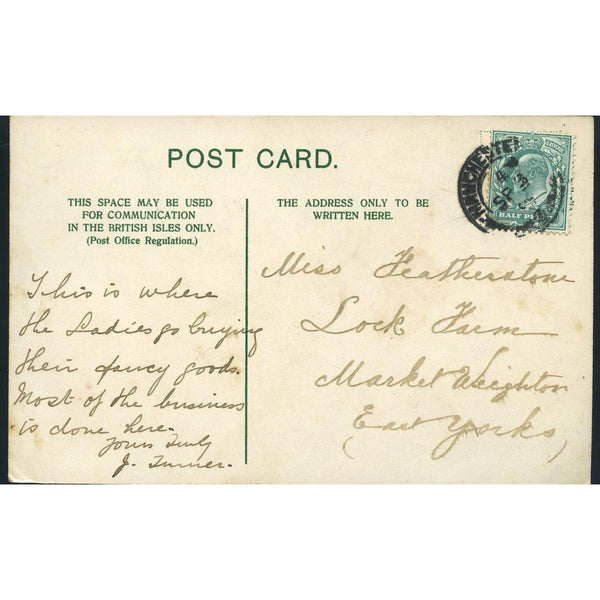 POST CARD.
THIS SPACE MAY BE USED
FOR COMMUNICATION
IN THE BRITISH ISLES ONLY.
(Post Office Regulation.)
THE ADDRESS ONLY TO BE
WRITTEN HERE.
MANCHESTER
SP
HALF
This is where
the Ladies go buying
their fancy goods.
Most of the business
is done here.
Yours Truly
J. Turner.
Miss Featherstone
Lock Farm
Market Weighton
(East Yorks)